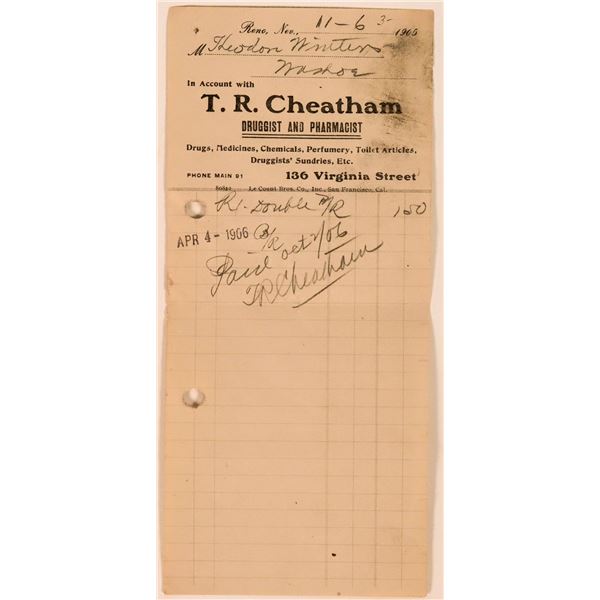 Reno, Nev., 11-6 1905
M Theodore Winters
Washoe
In Account with
T. R. Cheatham
DRUGGIST AND PHARMACIST
Drugs, Medicines, Chemicals, Perfumery, Toilet Articles,
Druggists' Sundries, Etc.
PHONE MAIN 91 136 Virginia Street
Le Count Bros. Co., Inc., San Francisco, Cal.
Double 150
APR 4 - 1906
Paid Oct /06
TR Cheatham